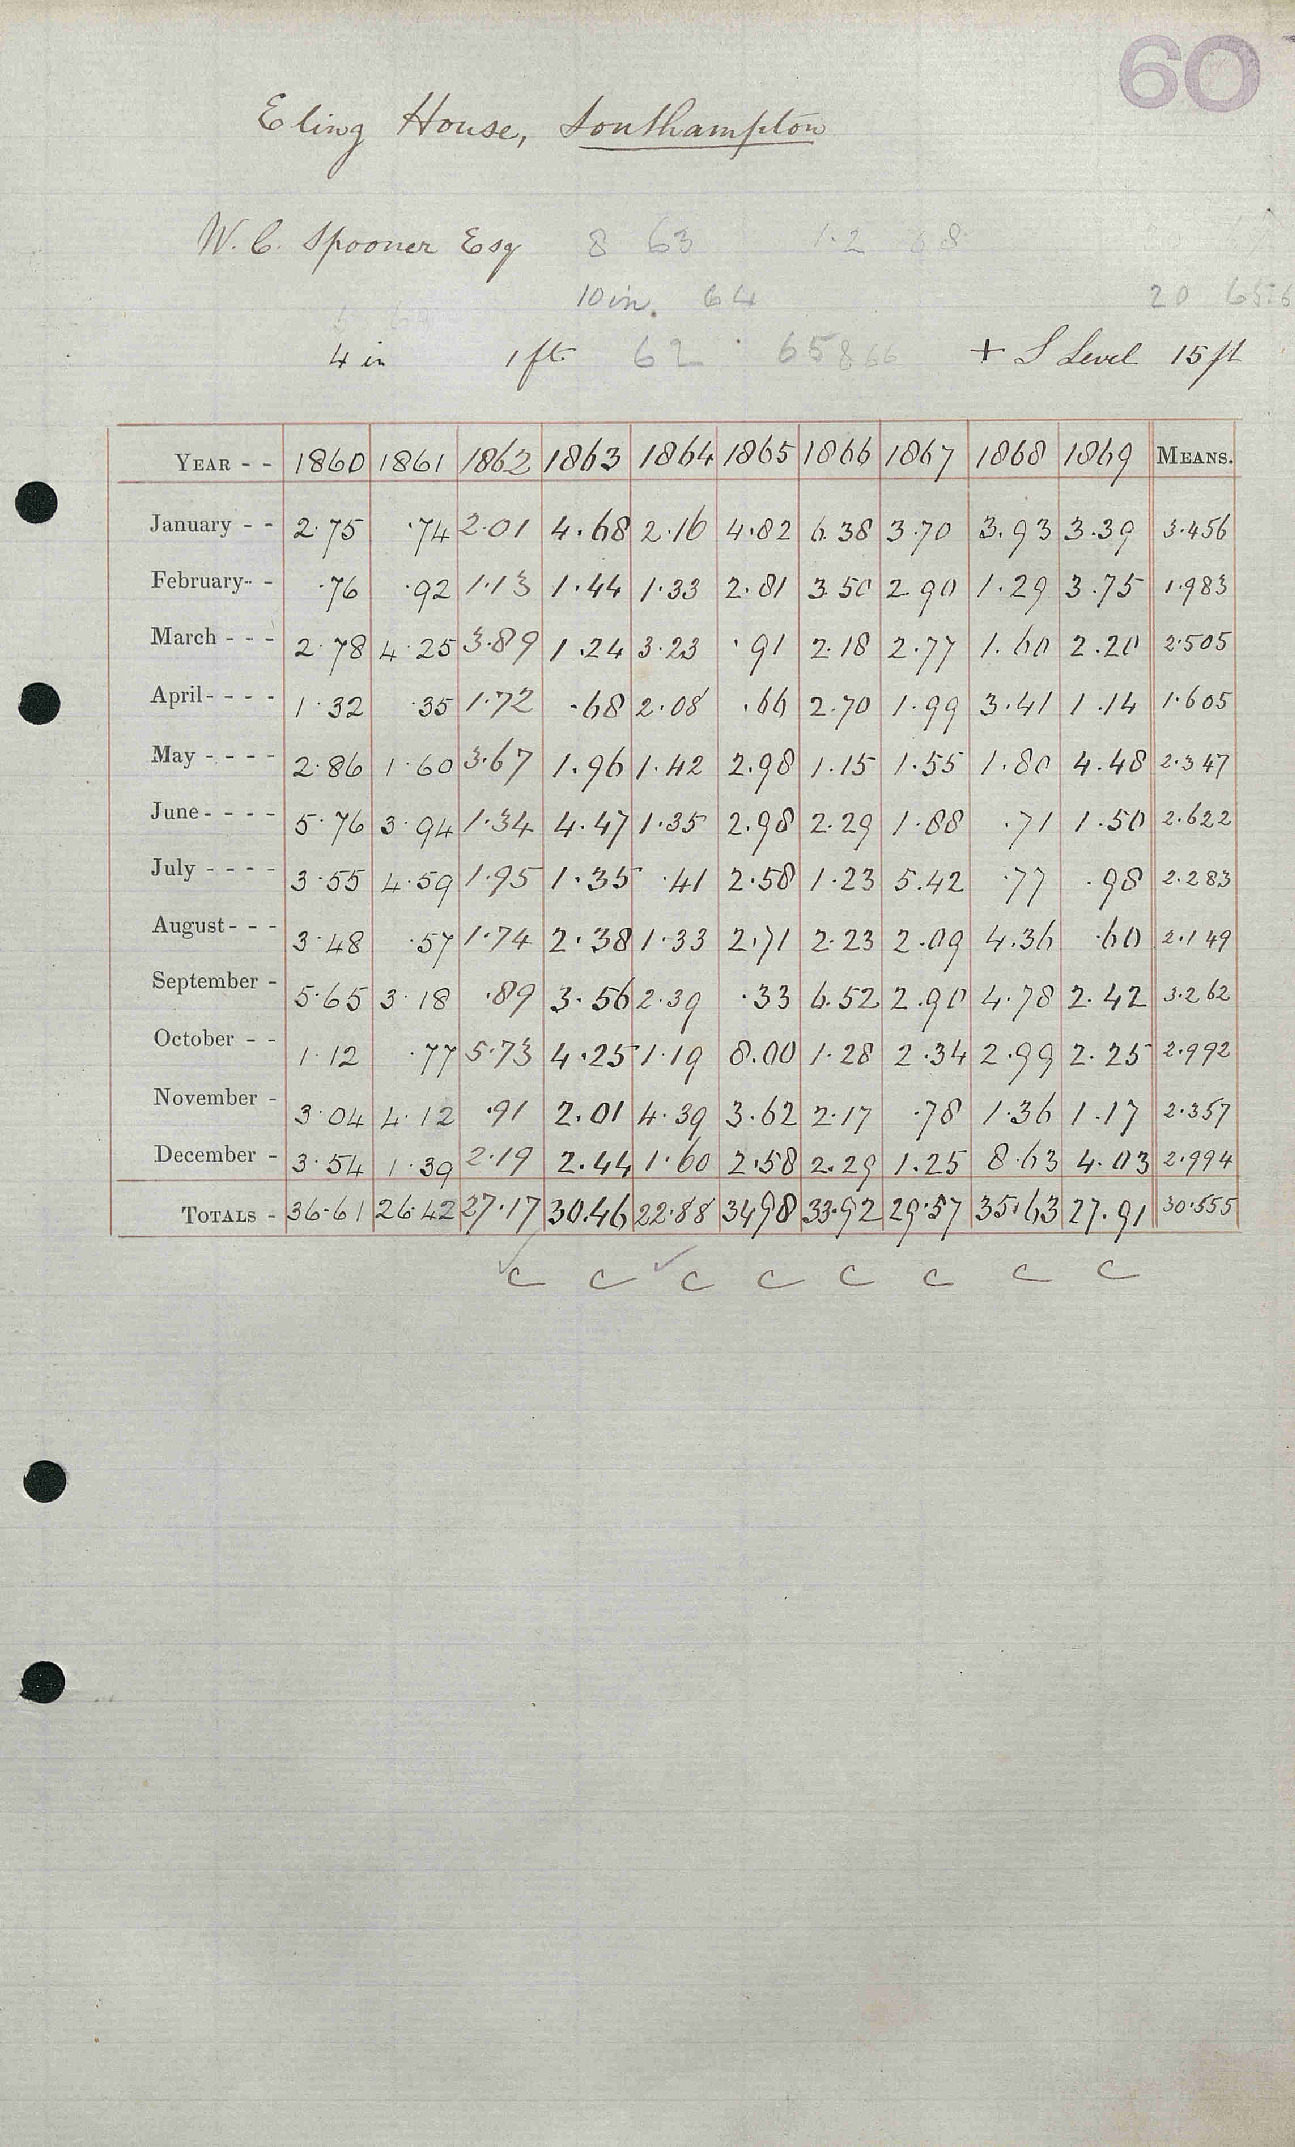 60
Eling House, Southampton
W. C. Spooner Esq 8 63 1.2 68
10 in. 64 20 65.6
4 in 1 ft 62 65 866 + S Level 15 ft
YEAR - - 1860 1861 1862 1863 1864 1865 1866 1867 1868 1869 MEANS.
January - - 2.75 .74 2.01 4.68 2.16 4.82 6.38 3.70 3.93 3.39 3.456
February - - .76 .92 1.13 1.44 1.33 2.81 3.50 2.90 1.29 3.75 1.983
March - - - 2.78 4.25 3.89 1.24 3.23 .91 2.18 2.77 1.60 2.20 2.505
April - - - - 1.32 .35 1.72 .68 2.08 .66 2.70 1.99 3.41 1.14 1.605
May - - - - 2.86 1.60 3.67 1.96 1.42 2.98 1.15 1.55 1.80 4.48 2.347
June - - - - 5.76 3.94 1.34 4.47 1.35 2.98 2.29 1.88 .71 1.50 2.622
July - - - - 3.55 4.59 1.95 1.35 .41 2.58 1.23 5.42 .77 .98 2.283
August - - - 3.48 .57 1.74 2.38 1.33 2.71 2.23 2.09 4.36 .60 2.149
September - 5.65 3.18 .89 3.56 2.39 .33 6.52 2.90 4.78 2.42 3.262
October - - 1.12 .77 5.73 4.25 1.19 8.00 1.28 2.34 2.99 2.25 2.992
November - 3.04 4.12 .91 2.01 4.39 3.62 2.17 .78 1.36 1.17 2.357
December - 3.54 1.39 2.19 2.44 1.60 2.58 2.29 1.25 8.63 4.03 2.994
TOTALS - 36.61 26.42 27.17 30.46 22.88 34.98 33.92 29.57 35.63 27.91 30.555
C C C C C C C C